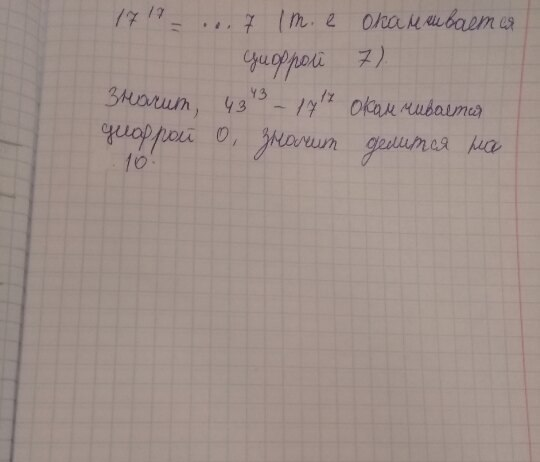 17¹⁷ = ... 7 (т. е оканчивается
цифрой 7)
Значит, 43⁴³ - 17¹⁷ оканчивается
цифрой 0, значит делится на
10.